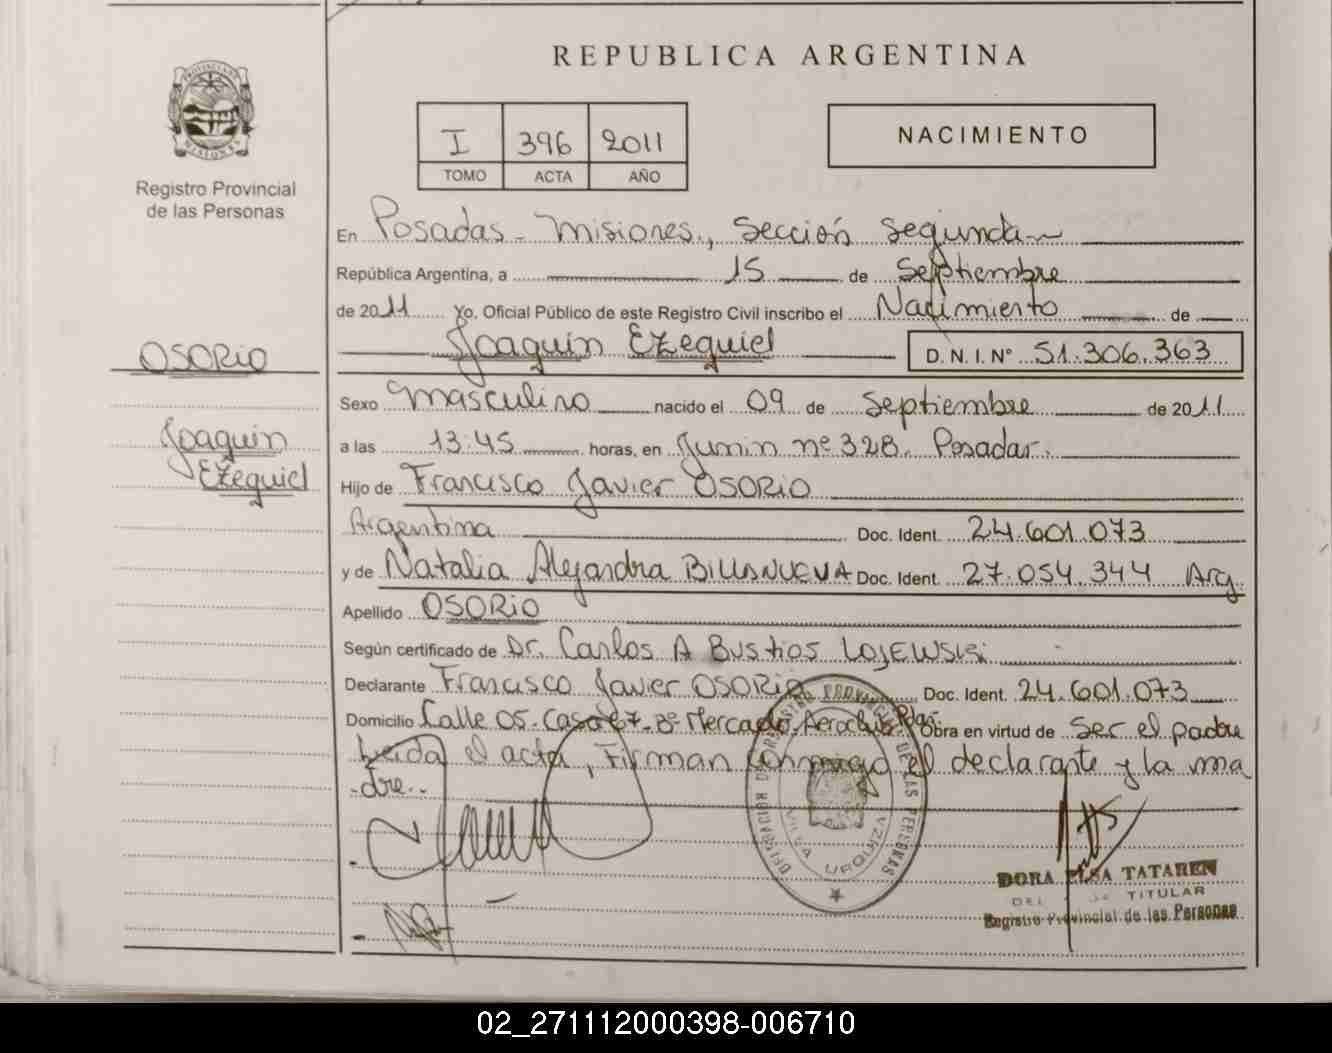 REPUBLICA ARGENTINA
PROVINCIA DE MISIONES
Registro Provincial
de las Personas
I 396 2011
TOMO ACTA AÑO
NACIMIENTO
En Posadas - Misiones, Sección Segunda
República Argentina, a 15 de Septiembre
de 2011 Yo, Oficial Público de este Registro Civil inscribo el Nacimiento de
Joaquin Ezequiel D.N.I. N° 51.306.363
OSORIO
Joaquin
Ezequiel
Sexo Masculino nacido el 09 de Septiembre de 2011
a las 13:45 horas, en Junin nº 328. Posadas.
Hijo de Francisco Javier OSORIO
Argentina Doc. Ident. 24.601.073
y de Natalia Alejandra Doc. Ident. 27.054.344 Arg.
Apellido OSORIO
Según certificado de Dr. Carlos A Bustos
Declarante Francisco Javier OSORIO Doc. Ident. 24.601.073
Domicilio Calle 05. Casa 67. Bº Mercado. Aeroclub Obra en virtud de ser el padre
Leida el acta, Firman conmigo el declarante y la ma
dre.
DELEGACION DE REGISTRO PROVINCIAL DE LAS PERSONAS
VILLA URQUIZA
DORA ELSA TATAREN
TITULAR
Registro Provincial de las Personas
02_271112000398-006710